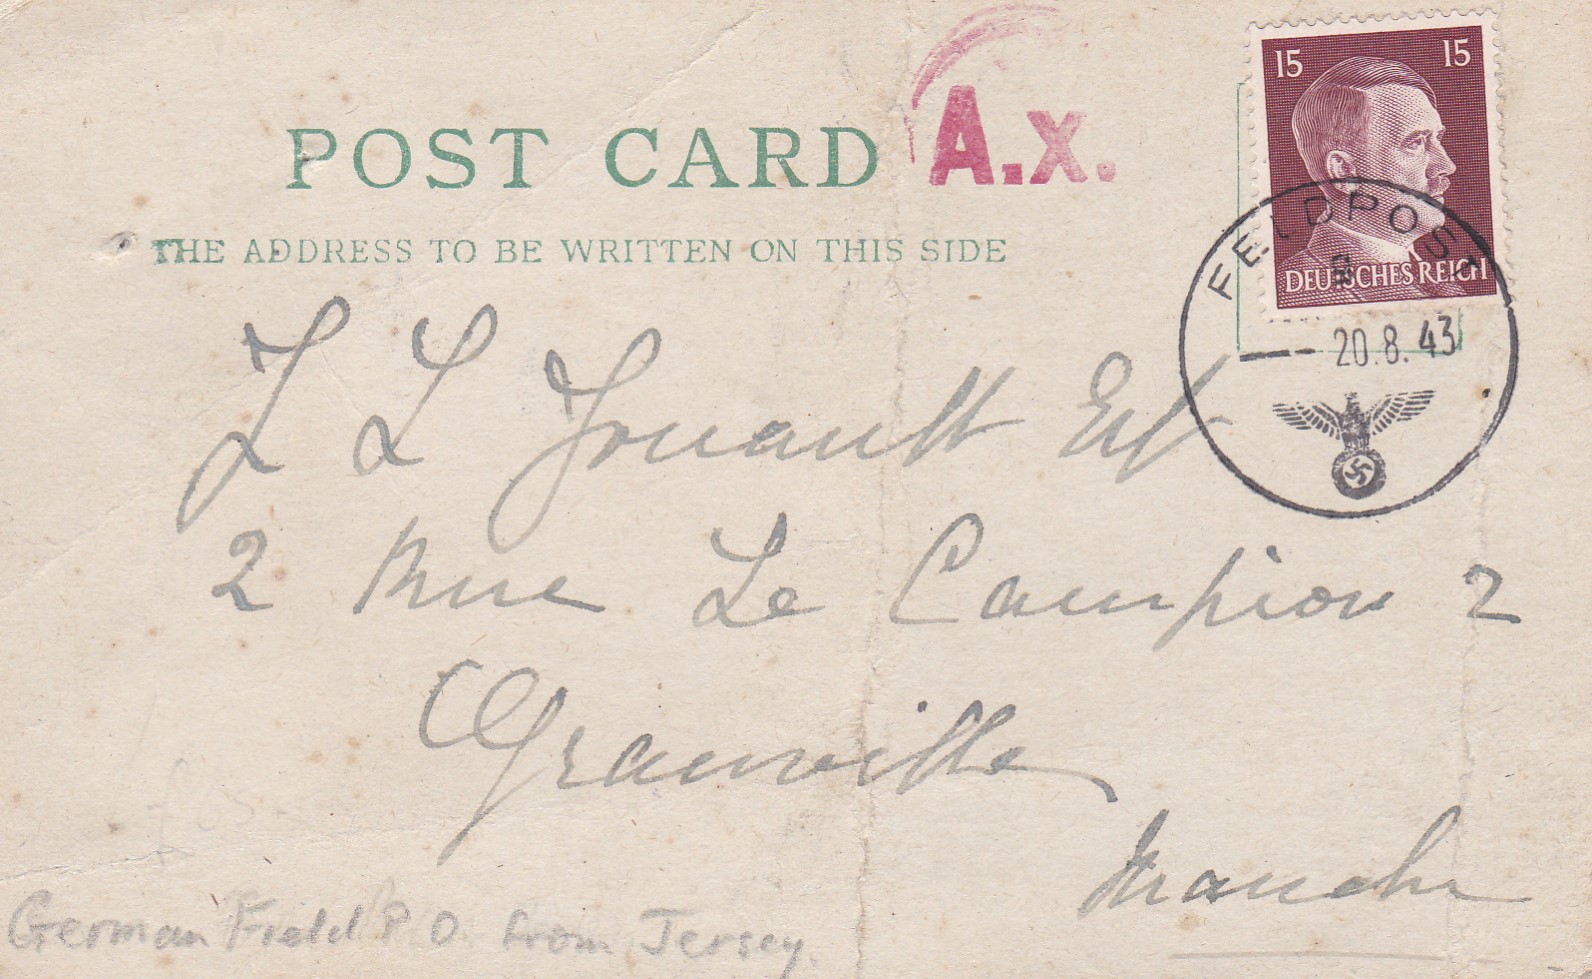 POST CARD
A.x.
15 15
DEUTSCHES REICH
THE ADDRESS TO BE WRITTEN ON THIS SIDE
FELDPOST
20.8.43
L Jouault Esq
2 Rue Le Campion 2
Granville
Manche
German Field P O. from Jersey.